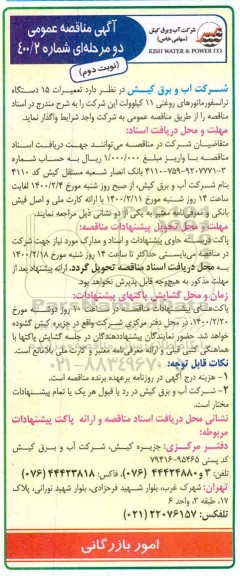 آگهی مناقصه عمومی
دو مرحله‌ای شماره ۴۰۰/۲
(نوبت دوم)
شرکت آب و برق کیش
(سهامی خاص)
KISH WATER & POWER CO.
شرکت آب و برق کیش در نظر دارد تعمیرات ۱۵ دستگاه
ترانسفورماتورهای روغنی ۱۱ کیلوولت این شرکت را به شرح مندرج در اسناد
مناقصه را از طریق مناقصه عمومی به شرکت واجد شرایط واگذار نماید.
مهلت و محل دریافت اسناد:
متقاضیان شرکت در مناقصه می‌توانند جهت دریافت اسناد
مناقصه با واریز مبلغ ۱/۰۰۰/۰۰۰ ریال به حساب شماره
۴۱۱۰-۷۵۹-۹۲۰۷۷۷۱-۲ بانک انصار شعبه مستقل کیش کد ۴۱۱۰
بنام شرکت آب و برق کیش، از صبح روز شنبه مورخ ۱۴۰۰/۲/۴ لغایت
ساعت ۱۴ روز شنبه مورخ ۱۴۰۰/۲/۱۱ با ارائه کارت ملی و اصل فیش
بانکی و معرفی‌نامه معتبر به یکی از دو نشانی ذیل مراجعه نمایند.
مهلت و محل تحویل پیشنهادات مناقصه:
پاکت قیمت، حاوی پیشنهادات و اسناد و مدارک مورد نیاز جهت شرکت
در مناقصه می‌بایستی حداکثر تا ساعت ۱۴ روز شنبه مورخ ۱۴۰۰/۲/۱۸
به محل دریافت اسناد مناقصه تحویل گردد. ارائه پیشنهاد بعد از
مهلت مذکور به هیچ‌وجه قابل پذیرش نخواهد بود.
زمان و محل گشایش پاکتهای پیشنهادات:
پاکت‌های پیشنهادات مناقصه در ساعت ۱۰ روز دوشنبه مورخ
۱۴۰۰/۲/۲۰، در محل دفتر مرکزی شرکت واقع در جزیره کیش گشوده
خواهد شد. حضور نمایندگان پیشنهاددهندگان در جلسه گشایش پاکتها با
هماهنگی کتبی قبلی و ارائه معرفی‌نامه معتبر و کارت ملی بلامانع است.
نکات قابل توجه:
۱- هزینه درج آگهی در روزنامه برعهده برنده مناقصه است.
۲- شرکت آب و برق کیش در رد یا قبول هر یک یا تمام پیشنهادات
مختار است.
نشانی محل دریافت اسناد مناقصه و ارائه پاکت پیشنهادات
مربوطه:
دفتر مرکزی: جزیره کیش، شرکت آب و برق کیش
کد پستی ۹۵۴۶۵-۷۹۴۱۶
تلفن: ۳ و ۴۴۴۲۴۸۸۰ (۰۷۶)، فاکس: ۴۴۴۲۳۸۱۸ (۰۷۶)
تهران: شهرک غرب، بلوار شهید فرحزادی، بلوار شهید نورانی، پلاک
۱۷، طبقه ۳، واحد ۶
تلفکس: ۲۲۰۷۶۱۵۷ (۰۲۱)
امور بازرگانی
۰۲۱-۸۸۳۴۹۶۷۰